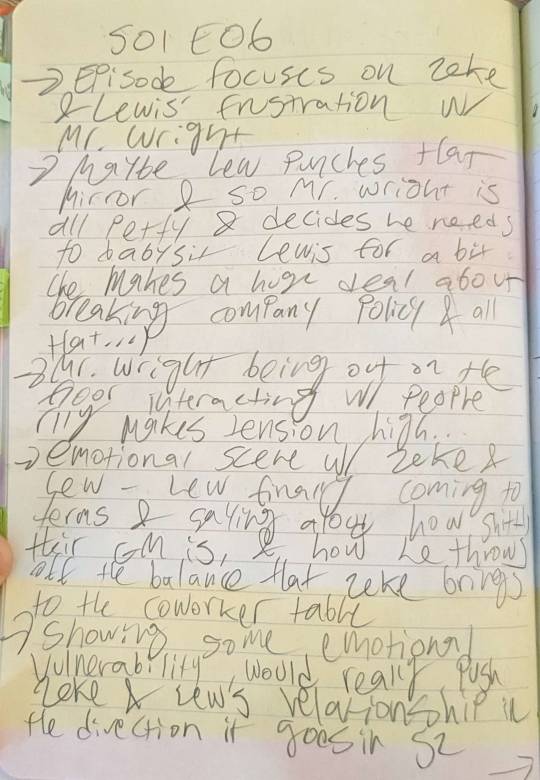 S01 E06
→ Episode focuses on Zeke
& Lewis' frustration w/
Mr. Wright
→ Maybe Lew punches that
mirror & so Mr. Wright is
all petty & decides he needs
to babysit Lewis for a bit
(he makes a huge deal about
breaking company policy & all
that...)
→ Mr. Wright being out on the
floor interacting w/ people
rlly makes tension high...
→ emotional scene w/ Zeke &
Lew - Lew finally coming to
terms & saying aloud how shitty
their GM is, & how he throws
off the balance that Zeke brings
to the coworker table
→ Showing some emotional
vulnerability, would really push
Zeke & Lew's relationship in
the direction it goes in S2
→